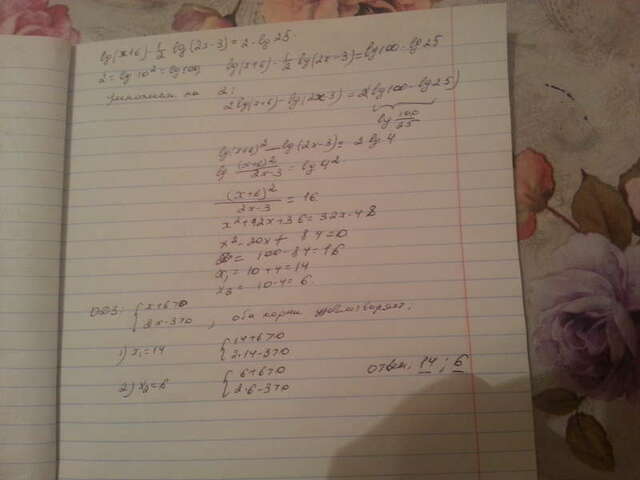 lg(x+6) - 1/2 lg(2x-3) = 2 - lg 25.
2 = lg 10² = lg 100, lg(x+6) - 1/2 lg(2x-3) = lg 100 - lg 25
умножаем на 2:
2 lg(x+6) - lg(2x-3) = 2(lg 100 - lg 25)
lg 100/25
lg(x+6)² - lg(2x-3) = 2 lg 4
lg (x+6)²/2x-3 = lg 4²
(x+6)²/2x-3 = 16
x²+12x+36=32x-48
x²-20x+84=0
D = 100-84=16
x₁ = 10+4=14
x₂ = 10-4=6.
ОДЗ: { x+6>0
2x-3>0 , оба корня удовлетворяют.
1) x₁=14 { 14+6>0
2·14-3>0
2) x₂=6 { 6+6>0
2·6-3>0
ответ: 14; 6